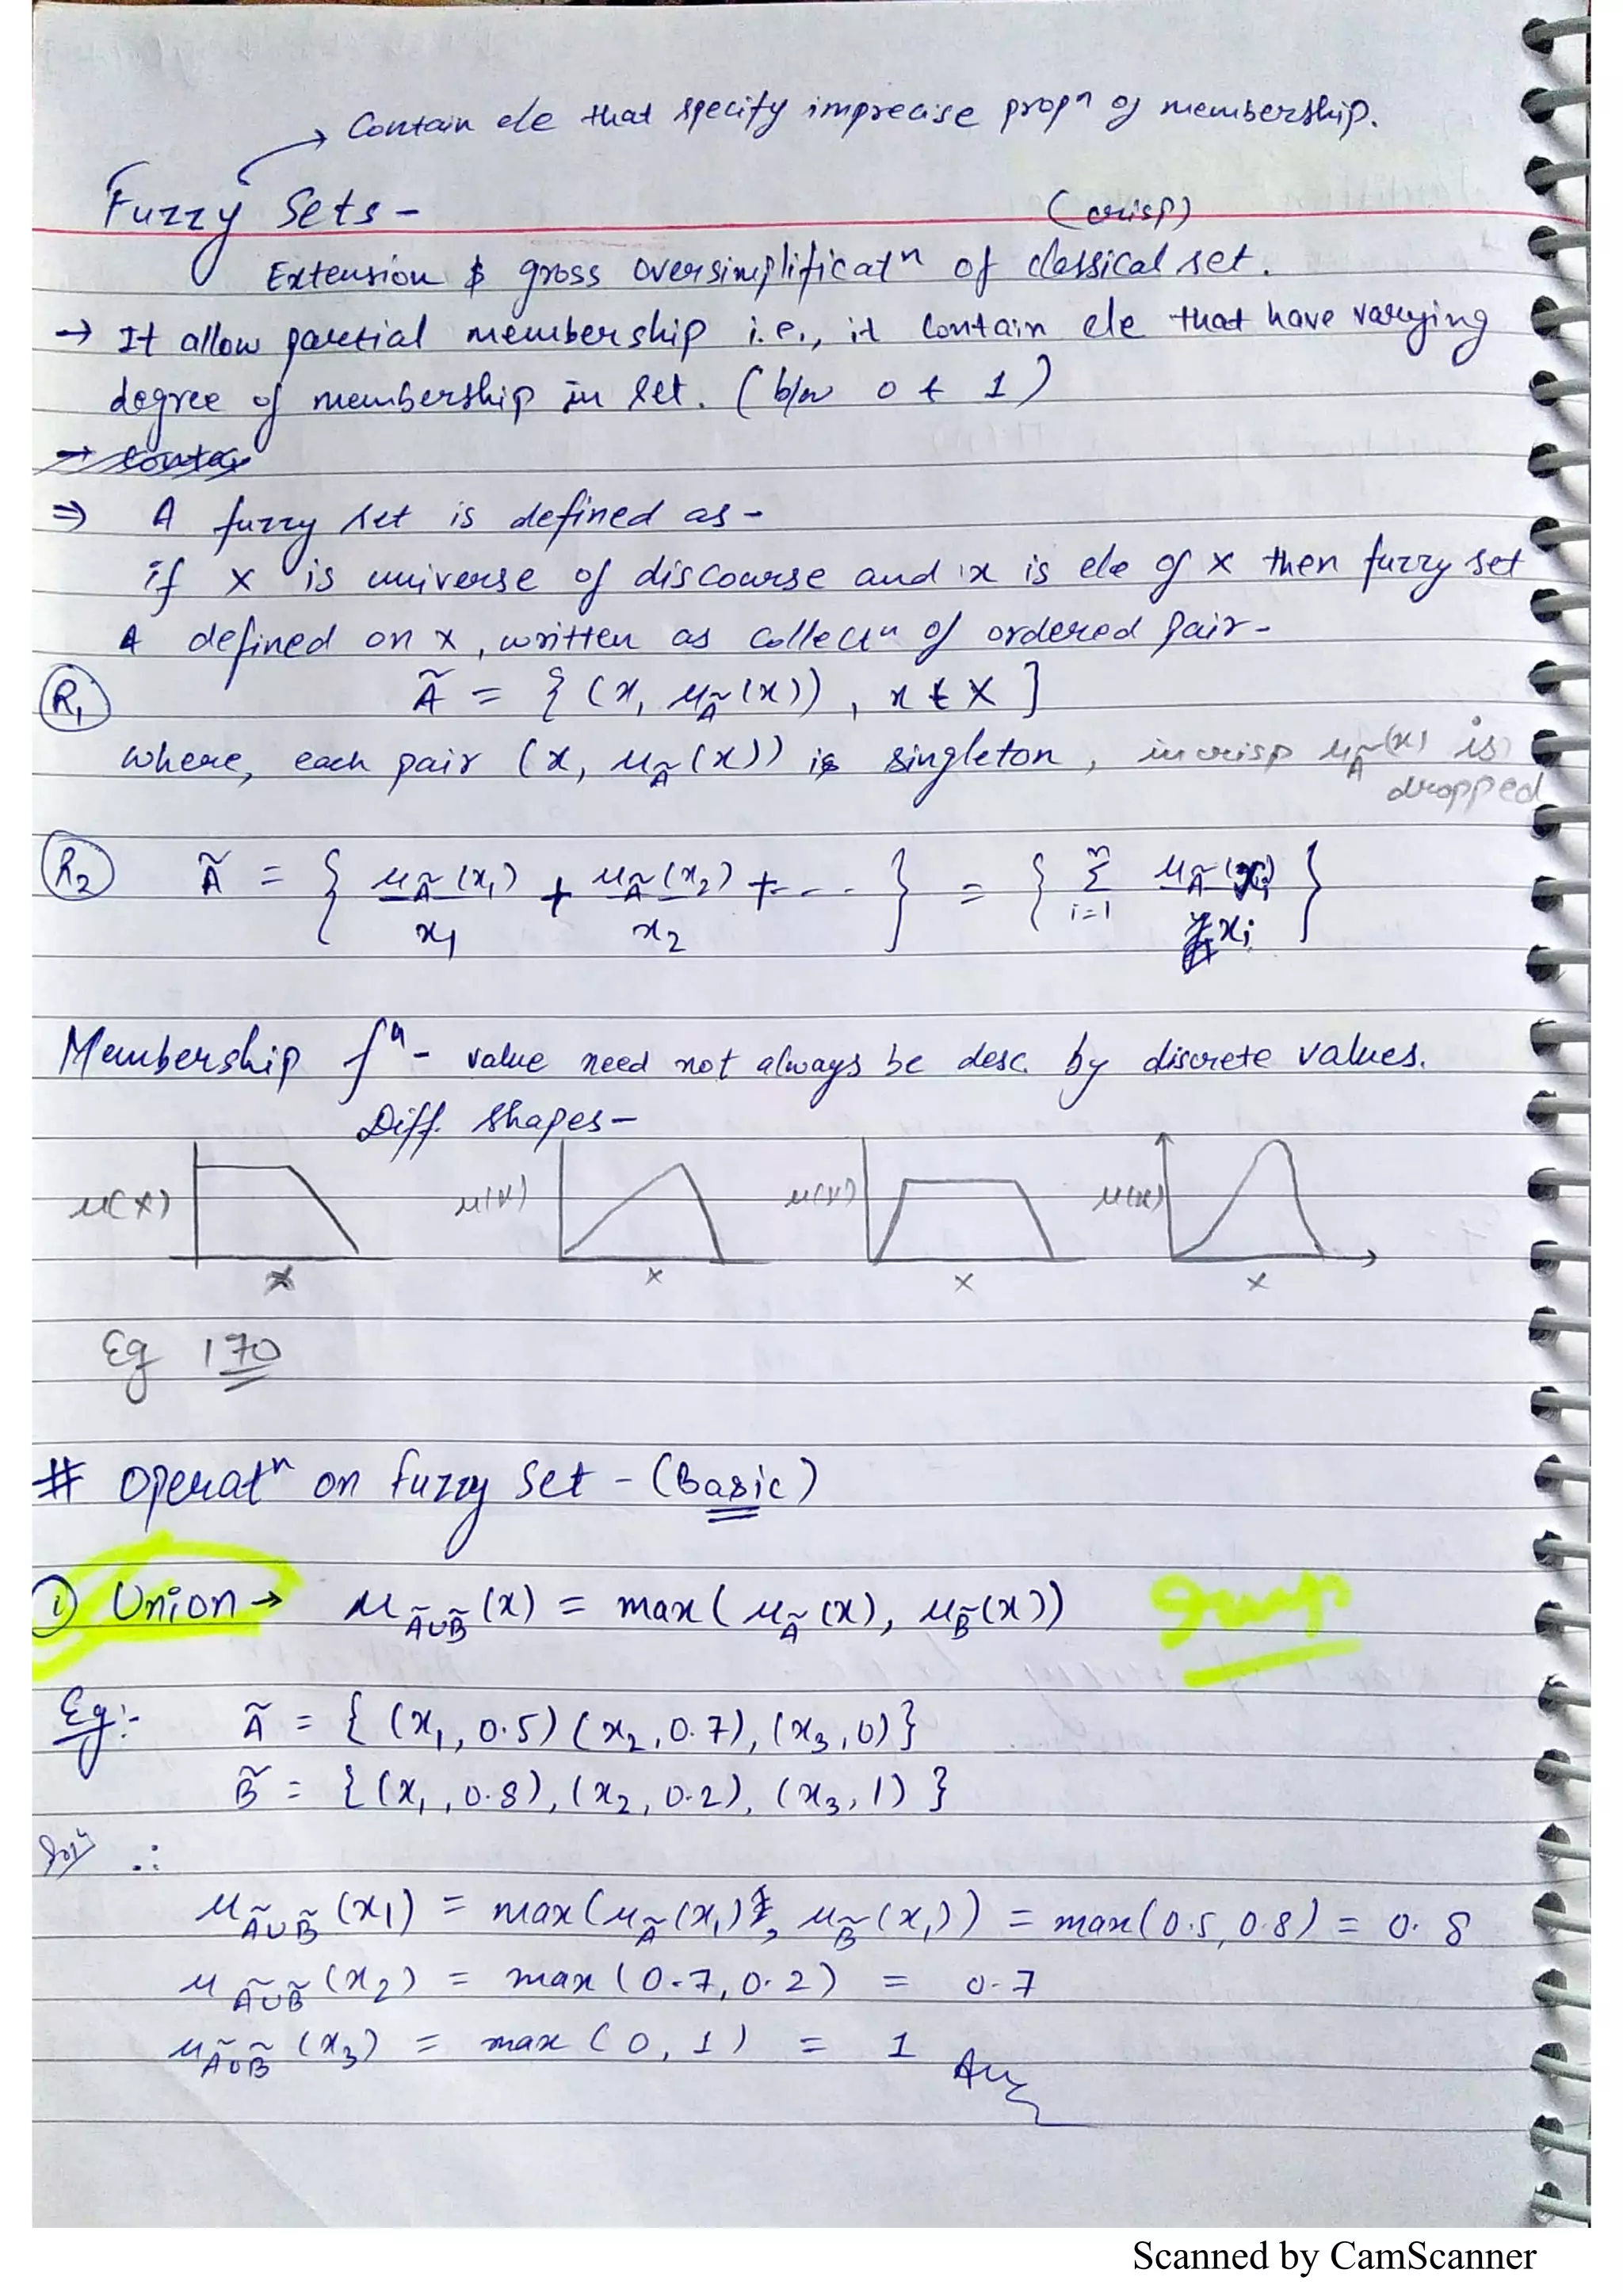 → Contain ele that specify imprecise propⁿ of membership.
Fuzzy Sets -
(crisp)
Extension & gross oversimplificatⁿ of classical set.
→ It allow partial membership i.e., it contain ele that have varying
degree of membership in set. (b/w 0 & 1)
⇒ A fuzzy set is defined as -
if X is universe of discourse and x is ele of X then fuzzy set
A defined on X, written as collectⁿ of ordered pair -
R₁ Ã = { (x, μÃ(x)), x ∈ X }
where, each pair (x, μÃ(x)) is singleton, in crisp μÃ(x) is
dropped
R₂ Ã = { μÃ(x₁)/x₁ + μÃ(x₂)/x₂ + --- } = { Σⁿᵢ₌₁ μÃ(xᵢ)/xᵢ }
Membership fⁿ - value need not always be desc. by discrete values.
Diff. shapes -
μ(x) μ(x) μ(x) μ(x)
x x x x
Eg 170
# Operatⁿ on fuzzy set - (Basic)
① Union → μÃ∪B̃(x) = max(μÃ(x), μB̃(x))
Eg:- Ã = { (x₁, 0.5) (x₂, 0.7), (x₃, 0)}
B̃ = {(x₁, 0.8), (x₂, 0.2), (x₃, 1) }
Solⁿ ∴
μÃ∪B̃(x₁) = max(μÃ(x₁), μB̃(x₁)) = max(0.5, 0.8) = 0.8
μÃ∪B̃(x₂) = max(0.7, 0.2) = 0.7
μÃ∪B̃(x₃) = max(0, 1) = 1 Ans
Scanned by CamScanner